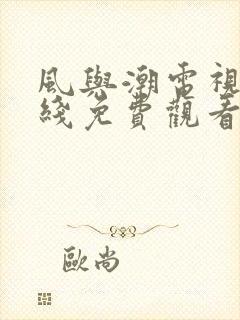 風與潮電視
綫免費觀看
歐尚